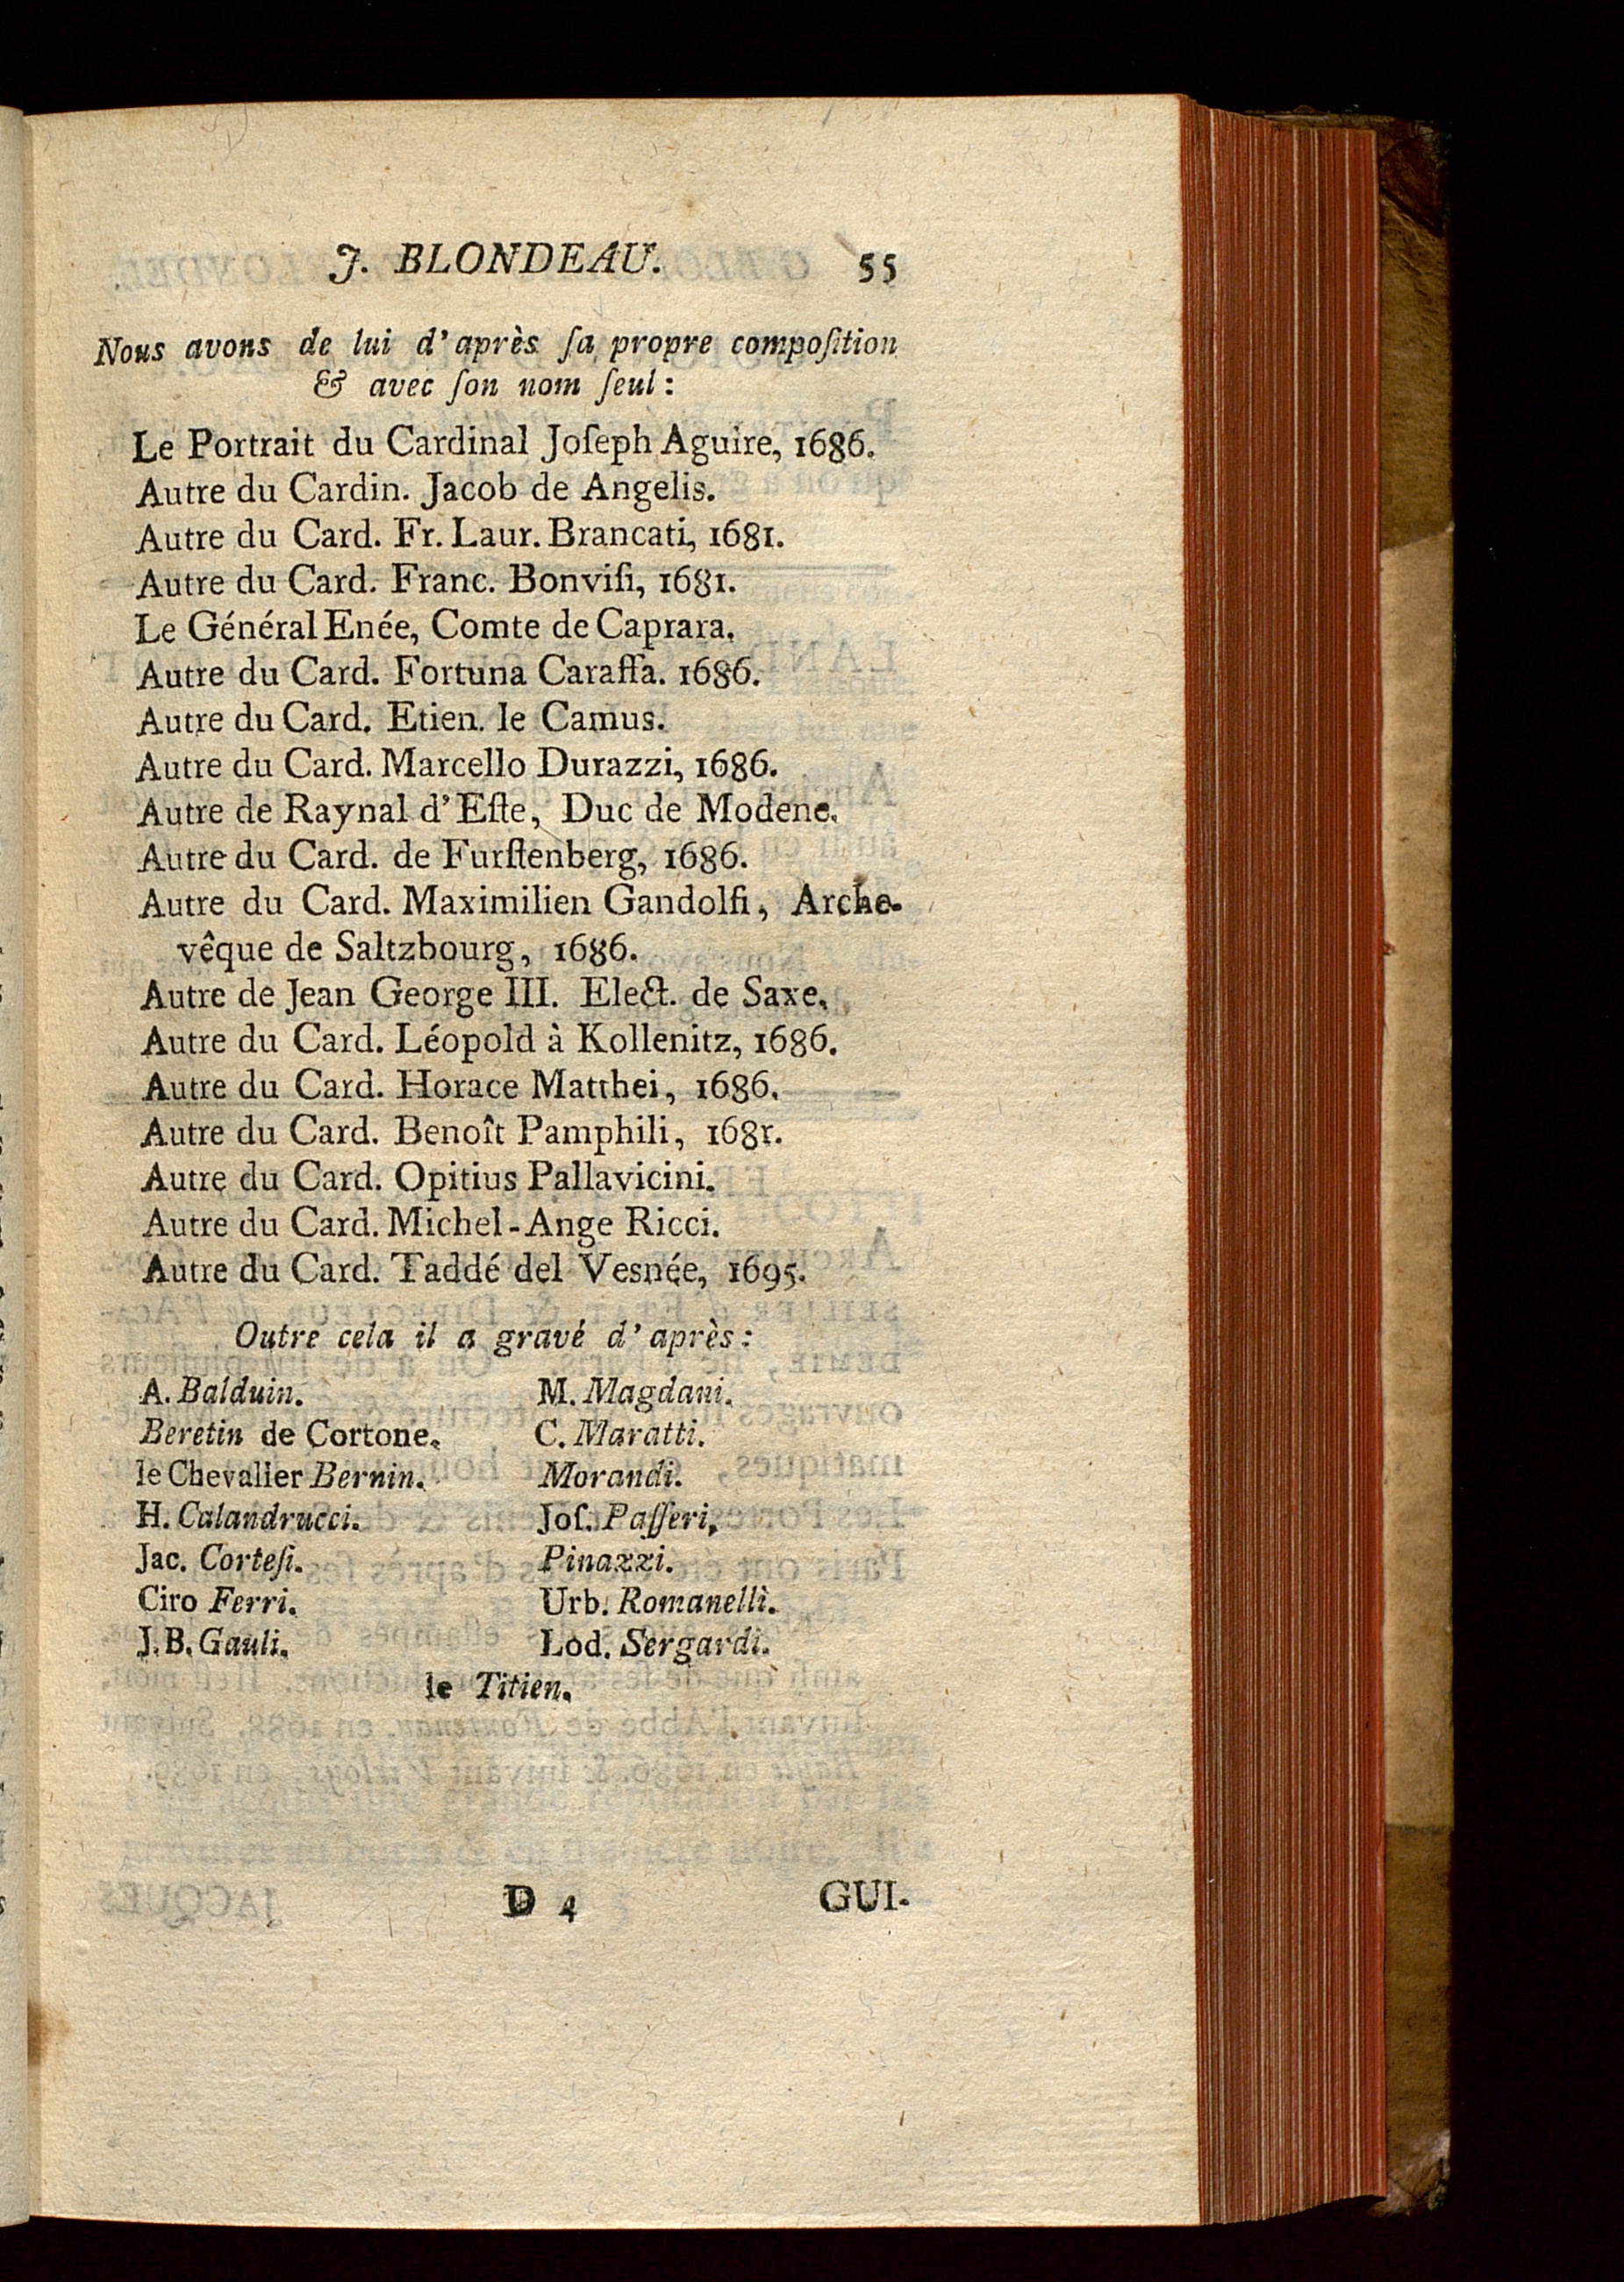 J. BLONDEAU. 55
Nous avons de lui d'après ſa propre compoſition
& avec ſon nom ſeul:
Le Portrait du Cardinal Joſeph Aguire, 1686.
Autre du Cardin. Jacob de Angelis.
Autre du Card. Fr. Laur. Brancati, 1681.
Autre du Card. Franc. Bonviſi, 1681.
Le Général Enée, Comte de Caprara.
Autre du Card. Fortuna Caraffa. 1686.
Autre du Card. Etien. le Camus.
Autre du Card. Marcello Durazzi, 1686.
Autre de Raynal d'Eſte, Duc de Modene.
Autre du Card. de Furſtenberg, 1686.
Autre du Card. Maximilien Gandolfi, Arche-
vêque de Saltzbourg, 1686.
Autre de Jean George III. Elect. de Saxe.
Autre du Card. Léopold à Kollenitz, 1686.
Autre du Card. Horace Matthei, 1686.
Autre du Card. Benoît Pamphili, 1681.
Autre du Card. Opitius Pallavicini.
Autre du Card. Michel-Ange Ricci.
Autre du Card. Taddé del Vesnée, 1695.
Outre cela il a gravé d'après:
A. Balduin. M. Magdani.
Beretin de Cortone. C. Maratti.
le Chevalier Bernin. Morandi.
H. Calandrucci. Joſ. Paſſeri.
Jac. Corteſi. Pinazzi.
Ciro Ferri. Urb. Romanelli.
J. B. Gauli. Lod. Sergardi.
le Titien.
D 4 GUI-